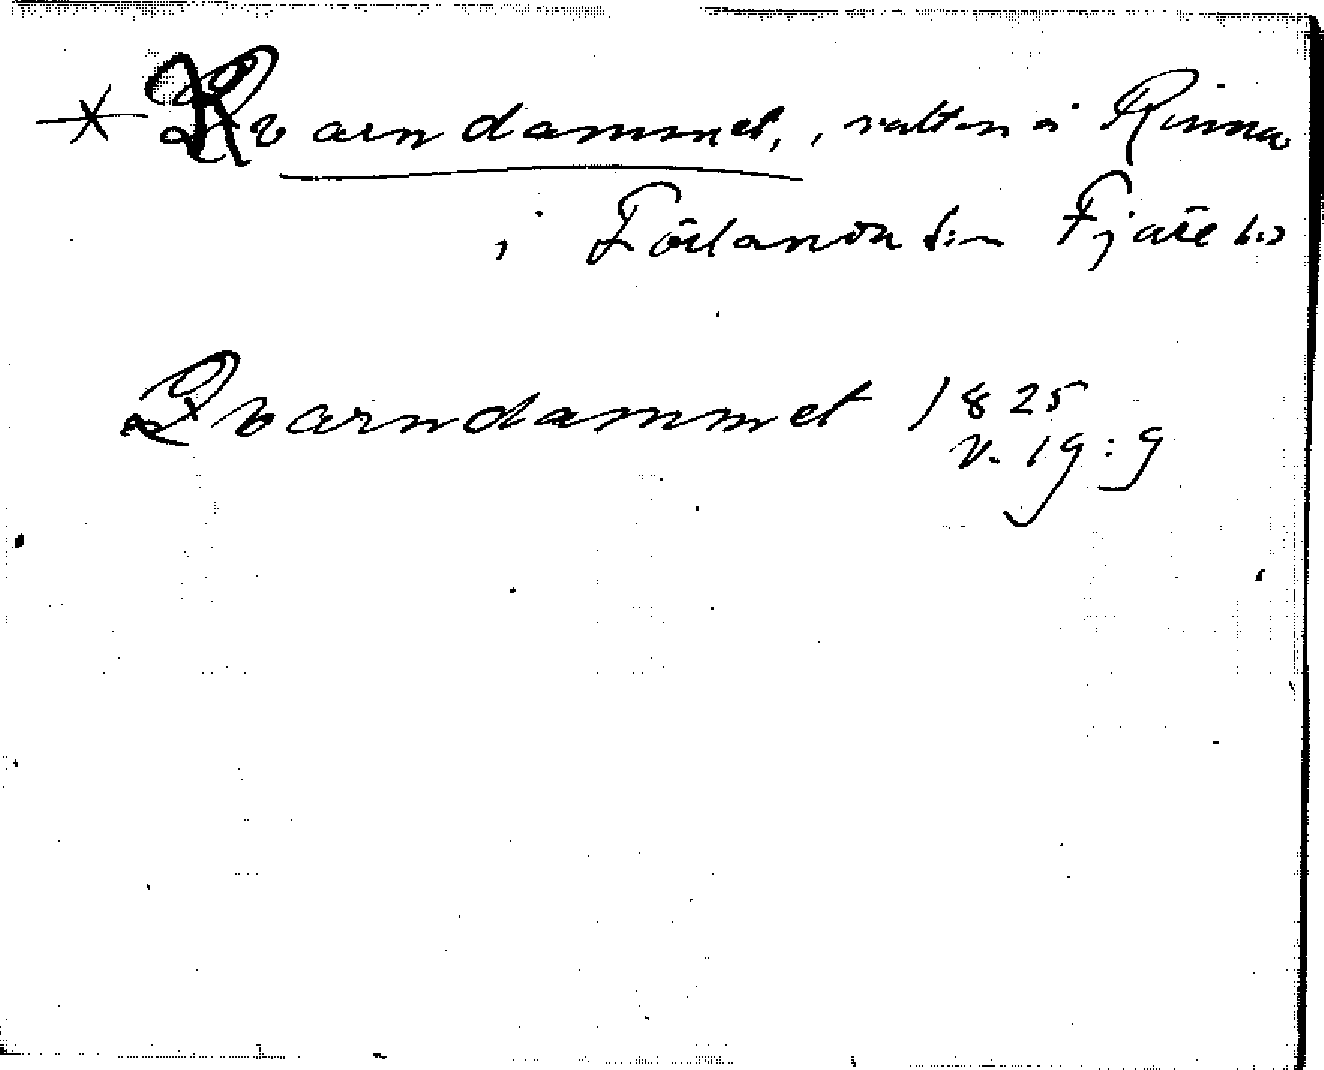 * Kvarndammet, vatten å Rinna
i Förlanda sn Fjäre hd
Qvarndammet 1825
v. 19:9